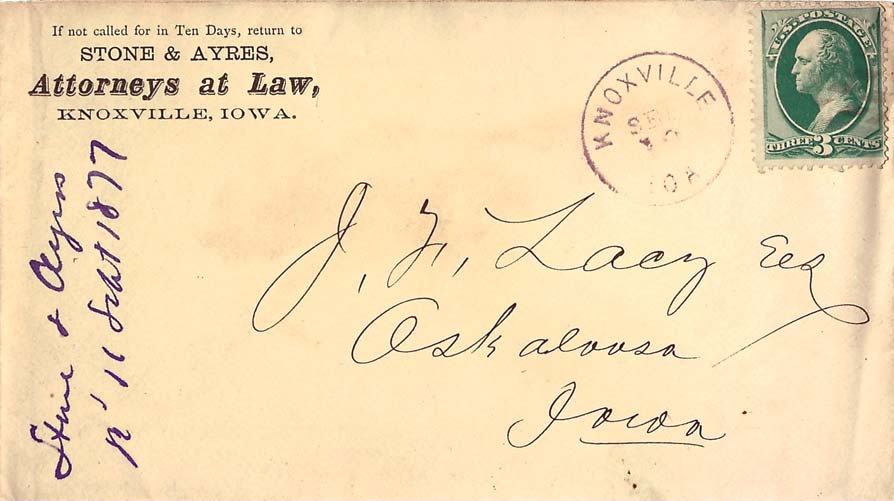 If not called for in Ten Days, return to
STONE & AYRES,
Attorneys at Law,
KNOXVILLE, IOWA.
KNOXVILLE
SEP
10
IOA
U.S. POSTAGE
THREE 3 CENTS
J. F. Lacy Esq
Oskaloosa
Iowa
Stone & Ayres
11 Sept 1877